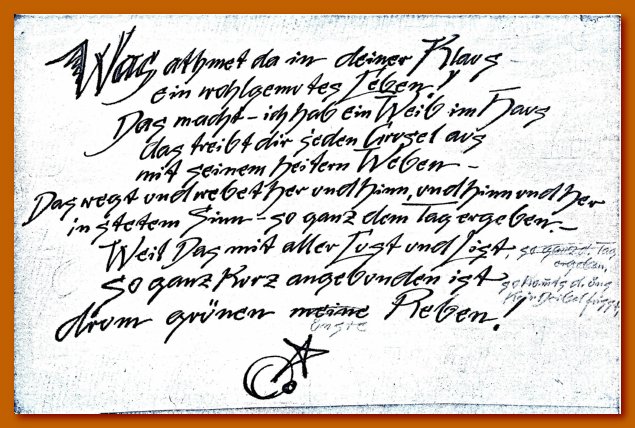 Was athmet da in deiner Klaus
ein wohlgemutes Leben!
Das macht - ich hab ein Weib im Haus
das treibt dir jeden Grusel aus
mit seinem heitern Weben -
Das regt und webet her und hinn, und hinn und her
in stetem Sinn - so ganz dem Tag ergeben. -
Weil Das mit aller Lust und List, so ganz d. Tag
ergeben,
so ganz kurz angebunden ist
drum grünen meine Reben!
unsre